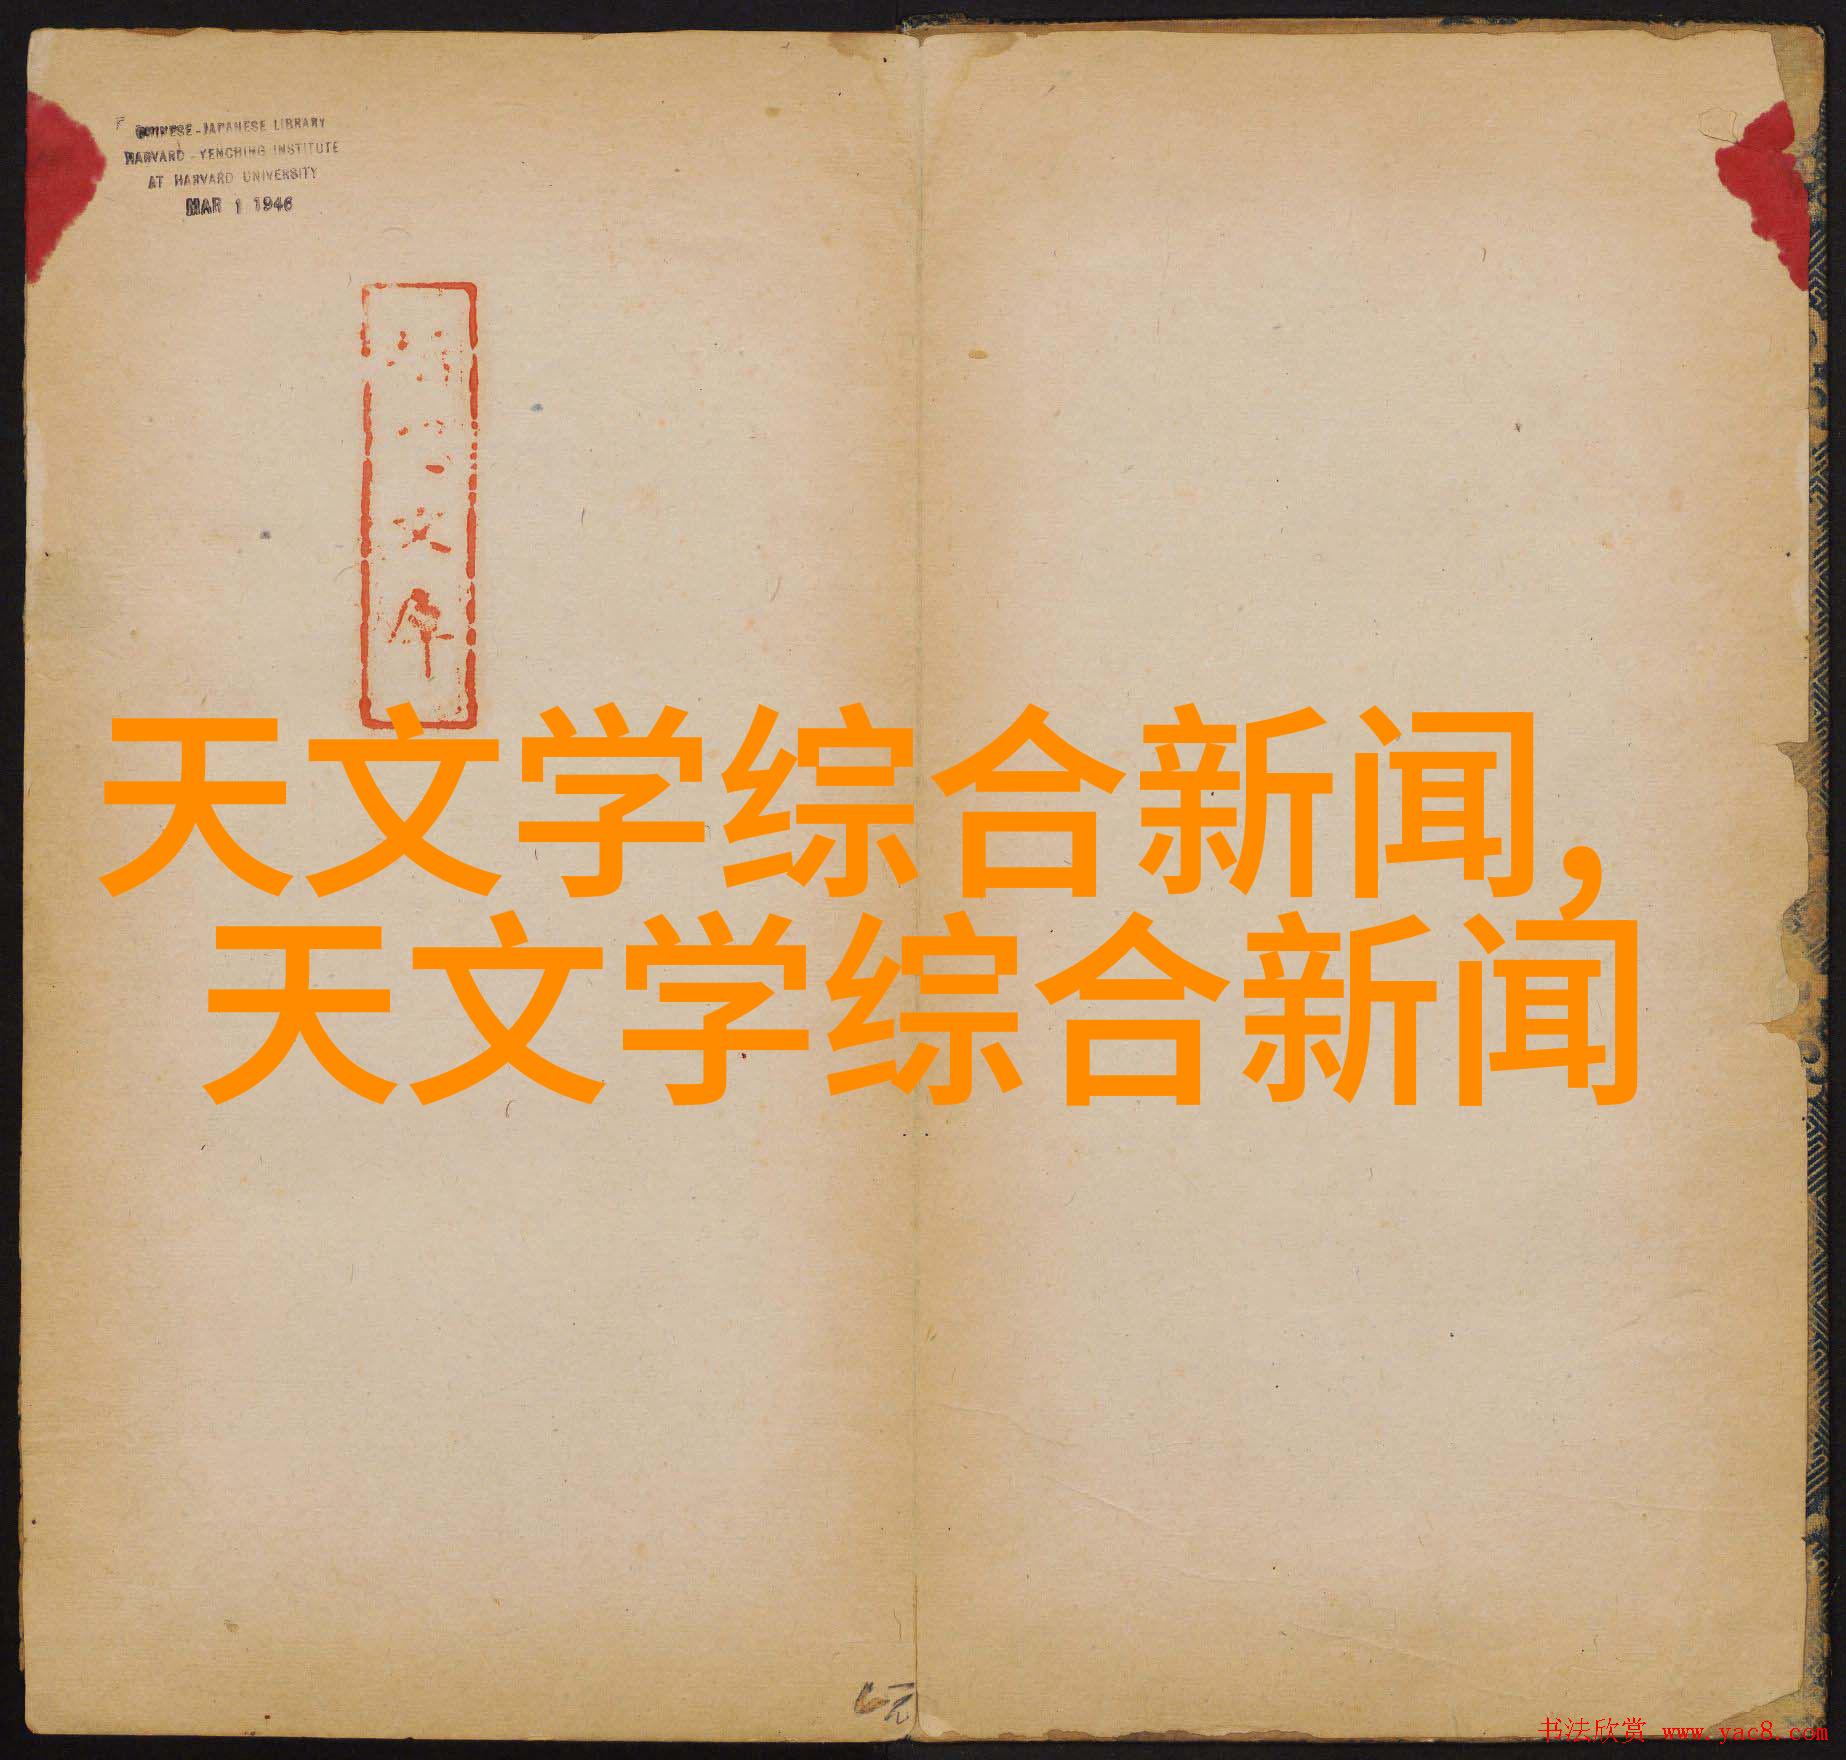 CHINESE-JAPANESE LIBRARY
HARVARD-YENCHING INSTITUTE
AT HARVARD UNIVERSITY
MAR 1 1946
天文学综合新闻,
天文学综合新闻
元
书法欣赏 www.yac8.com